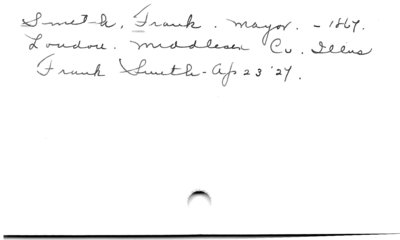 Smith, Frank. Mayor. - 1867.
London. Middlesex Co. Illus
Frank Smith - Ap 23 '27.